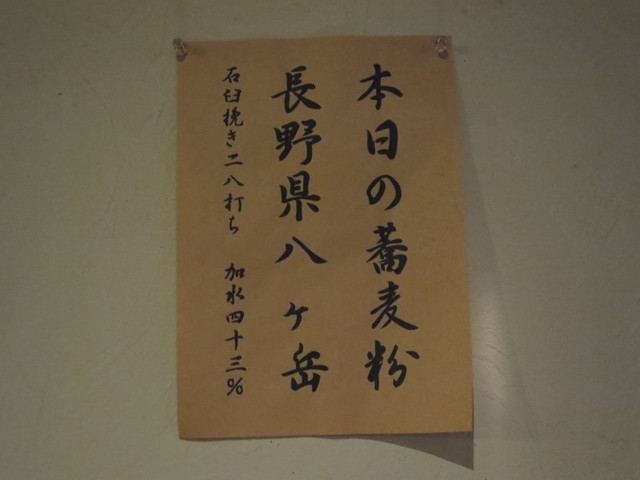 本日の蕎麦粉
長野県八ヶ岳
石臼挽き二八打ち 加水四十三%